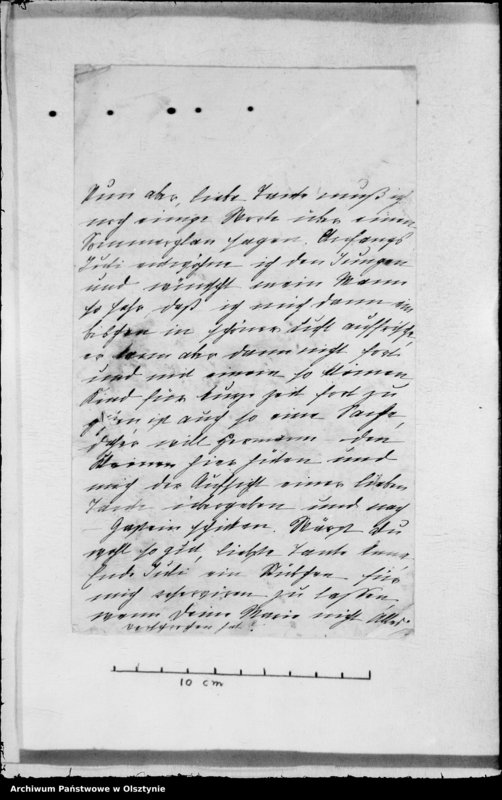 Nun aber, liebe Tante muß ich
noch einige Worte über einen
Sommerplan sagen. Anfangs
Juli entwöhne ich den Jungen
und wünscht mein Mann
so sehr, daß ich mich dann ein
bischen in schöner Luft auffrische,
er kann aber dann nicht fort
und mit einem so kleinen
Kind für kurze Zeit fort zu
gehen ist auch so eine Sache,
daher will Hermann den
Kleinen hier hüten und
mich der Aufsicht einer lieben
Tante übergeben und nach
Gastein schicken. Wärst Du
wohl so gut, liebste Tante
Ende Juli ein Stübchen für
mich reserviren zu lassen
wenn Deine Marie nicht Alles
versprochen hat.
10 cm
Archiwum Państwowe w Olsztynie